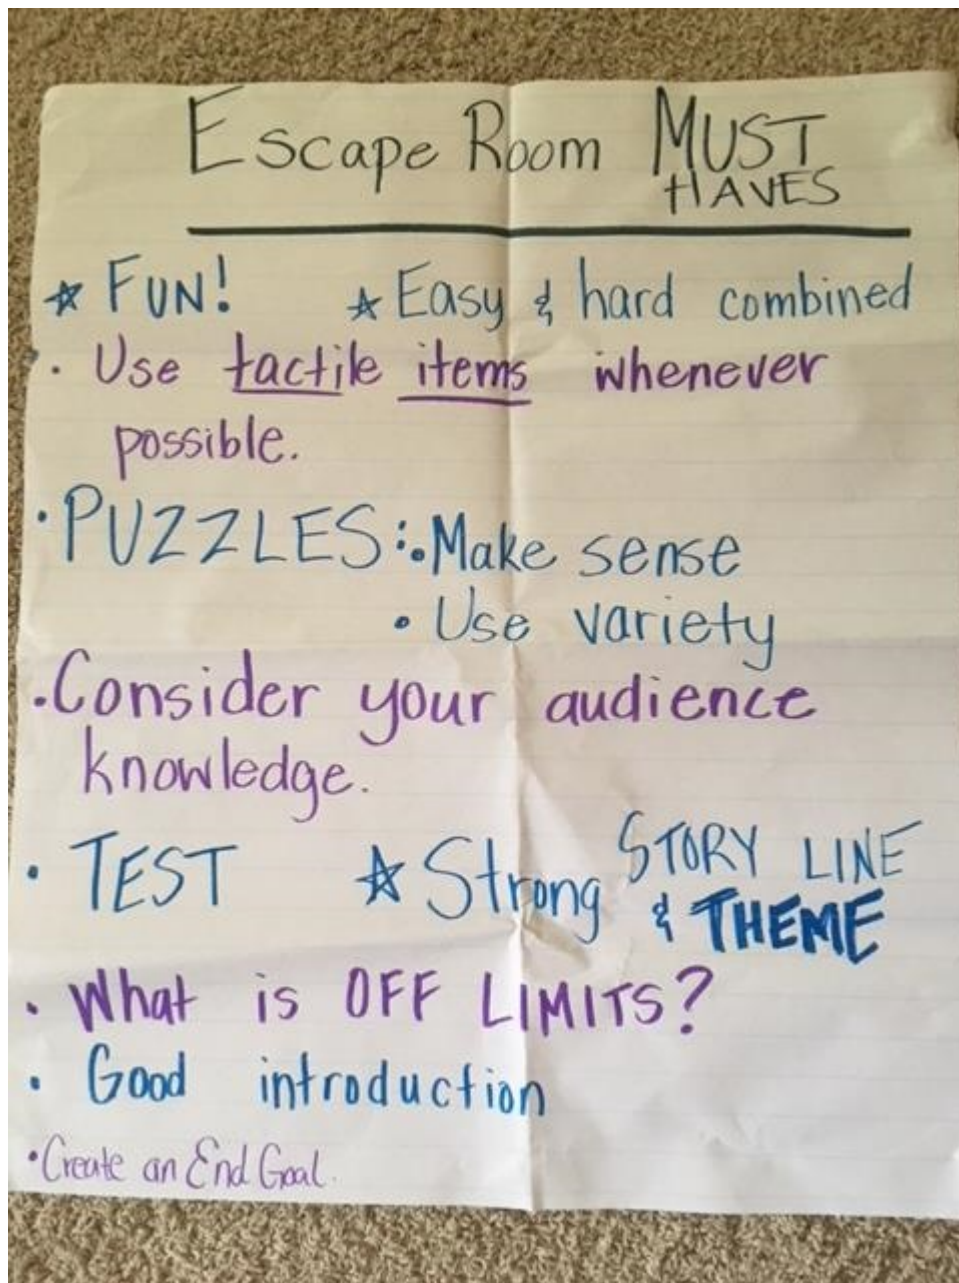 Escape Room MUST
HAVES
☆ FUN! ☆ Easy & hard combined
· Use tactile items whenever
possible.
· PUZZLES: · Make sense
· Use variety
· Consider your audience
knowledge.
· TEST ☆ Strong STORY LINE
& THEME
· What is OFF LIMITS?
· Good introduction
· Create an End Goal.